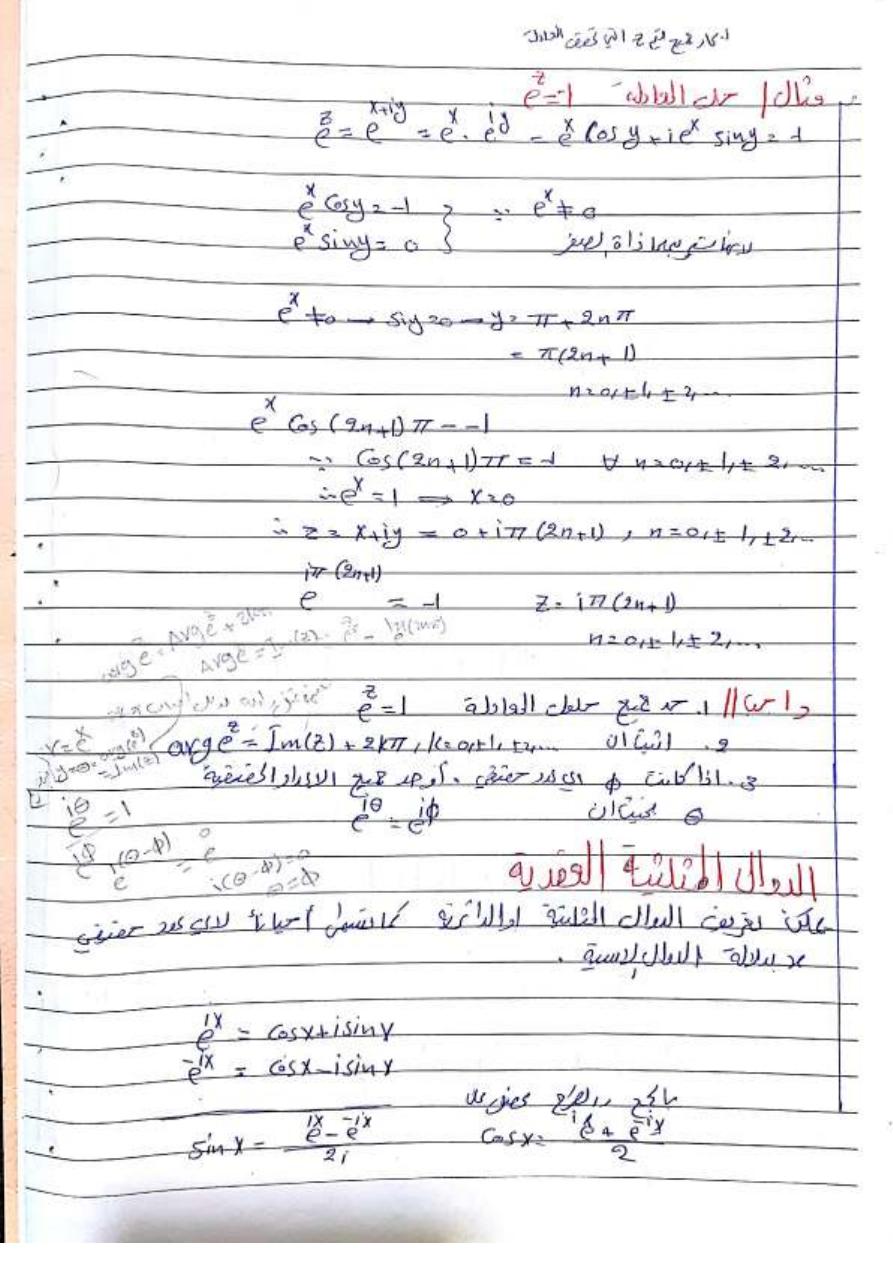 ايجاد جميع قيم z التي تحقق المعادلة
مثال / حل المعادلة e^z = -1
e^z = e^{x+iy} = e^x . e^{iy} = e^x Cosy + i e^x siny = -1
e^x Cosy = -1 } ∵ e^x ≠ 0
e^x siny = 0 }
e^x ≠ 0 → siy = 0 → y = π + 2nπ
= π(2n+1)
n = 0, ±1, ±2, ...
e^x Cos(2n+1)π = -1
∵ Cos(2n+1)π = -1 ∀ n = 0, ±1, ±2, ...
∴ e^x = 1 ⟹ x = 0
∴ z = x+iy = 0 + iπ(2n+1) , n = 0, ±1, ±2, ..
e^{iπ(2n+1)} = -1 z = iπ(2n+1)
n = 0, ±1, ±2, ...
arg e^z = Arg e^z + 2kπ
واجب // 1. جد جميع حلول المعادلة e^z = 1
2. اثبت ان arg e^z = Im(z) + 2kπ , k = 0, ±1, ±2, ...
r = e^x
y = θ = arg(e^z)
= Im(z)
3. اذا كانت ϕ اي عدد حقيقي . أوجد جميع الاعداد الحقيقية
θ بحيث ان e^{iθ} = e^{iϕ}
e^{iθ}/e^{iϕ} = 1
e^{i(θ-ϕ)} = e^0
i(θ-ϕ) = 0
θ = ϕ
الدوال المثلثية العقدية
يمكن تعريف الدوال المثلثية او الدائرية كما تسمى أحيانا لاي عدد حقيقي
x بدلالة الدوال الاسية .
e^{ix} = cosx + i sinx
e^{-ix} = cosx - i sinx
بالجمع والطرح نحصل على
Sin x = (e^{ix} - e^{-ix})/2i Cosx = (e^{ix} + e^{-ix})/2